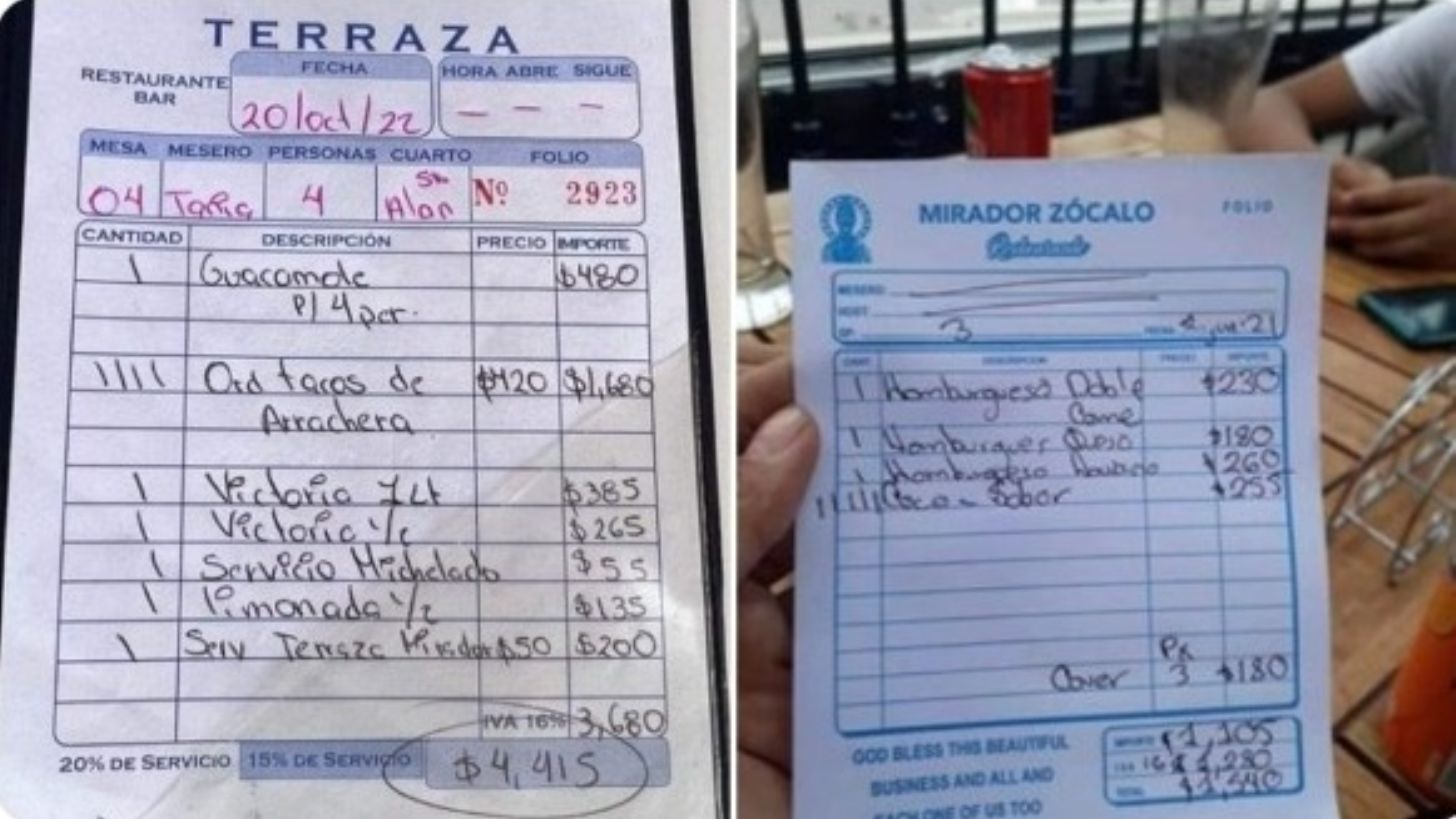 TERRAZA
RESTAURANTE
BAR
FECHA
20/oct/22
HORA ABRE SIGUE
— — —
MESA MESERO PERSONAS CUARTO FOLIO
04 Tapia 4 Sr Alan Nº 2923
CANTIDAD DESCRIPCIÓN PRECIO IMPORTE
1 Guacamole $480
P/ 4 per.
1111 Ord tacos de $420 $1,680
Arrachera
1 Victoria 1 Lt $385
1 Victoria 1/2 $265
1 Servicio Michelado $55
1 limonada 1/2 $135
1 Serv Terraza Mirador $50 $200
IVA 16% 3,680
20% DE SERVICIO 15% DE SERVICIO $4,415
MIRADOR ZÓCALO FOLIO
Restaurante
MESERO:
HOST:
3 FECHA 21
CANT DESCRIPCION PRECIO IMPORTE
1 Hamburguesa Doble $230
Carne
1 Hamburgues Queso $180
1 Hamburguesa $260
11111 Coca - Sabor $255
Px
Cover 3 $180
GOD BLESS THIS BEAUTIFUL
BUSINESS AND ALL AND
EACH ONE OF US TOO
IMPORTE $1,105
IVA 16 1,280
TOTAL $1,540